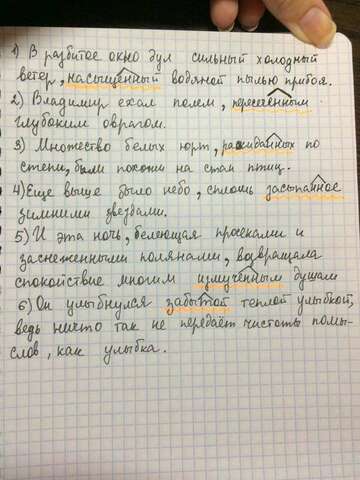 1) В разбитое окно дул сильный холодный
ветер, насыщенный водяной пылью прибоя.
2) Владимир ехал полем, пересечённым
глубоким оврагом.
3) Множество белых юрт, раскиданных по
степи, были похожи на стаи птиц.
4) Еще выше было небо, сплошь засыпанное
зимними звездами.
5) И эта ночь, белеющая просеками и
заснеженными полянами, возвращала
спокойствие многим измученным душам
6) Он улыбнулся забытой теплой улыбкой,
ведь ничто так не передаёт чистоты помы-
слов, как улыбка.